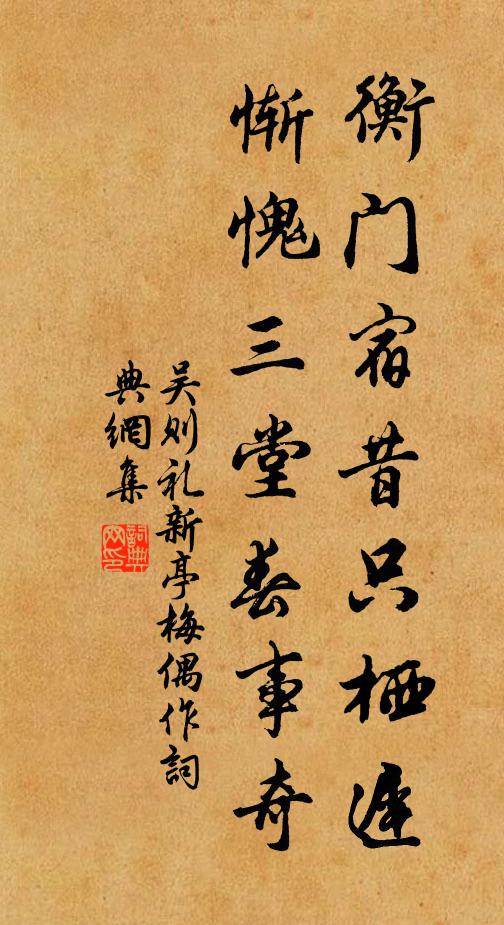 衡门宿昔只栖遲
慚愧三堂春事奇
吴则礼新亭梅偶作詞
典網集
詞典
网印